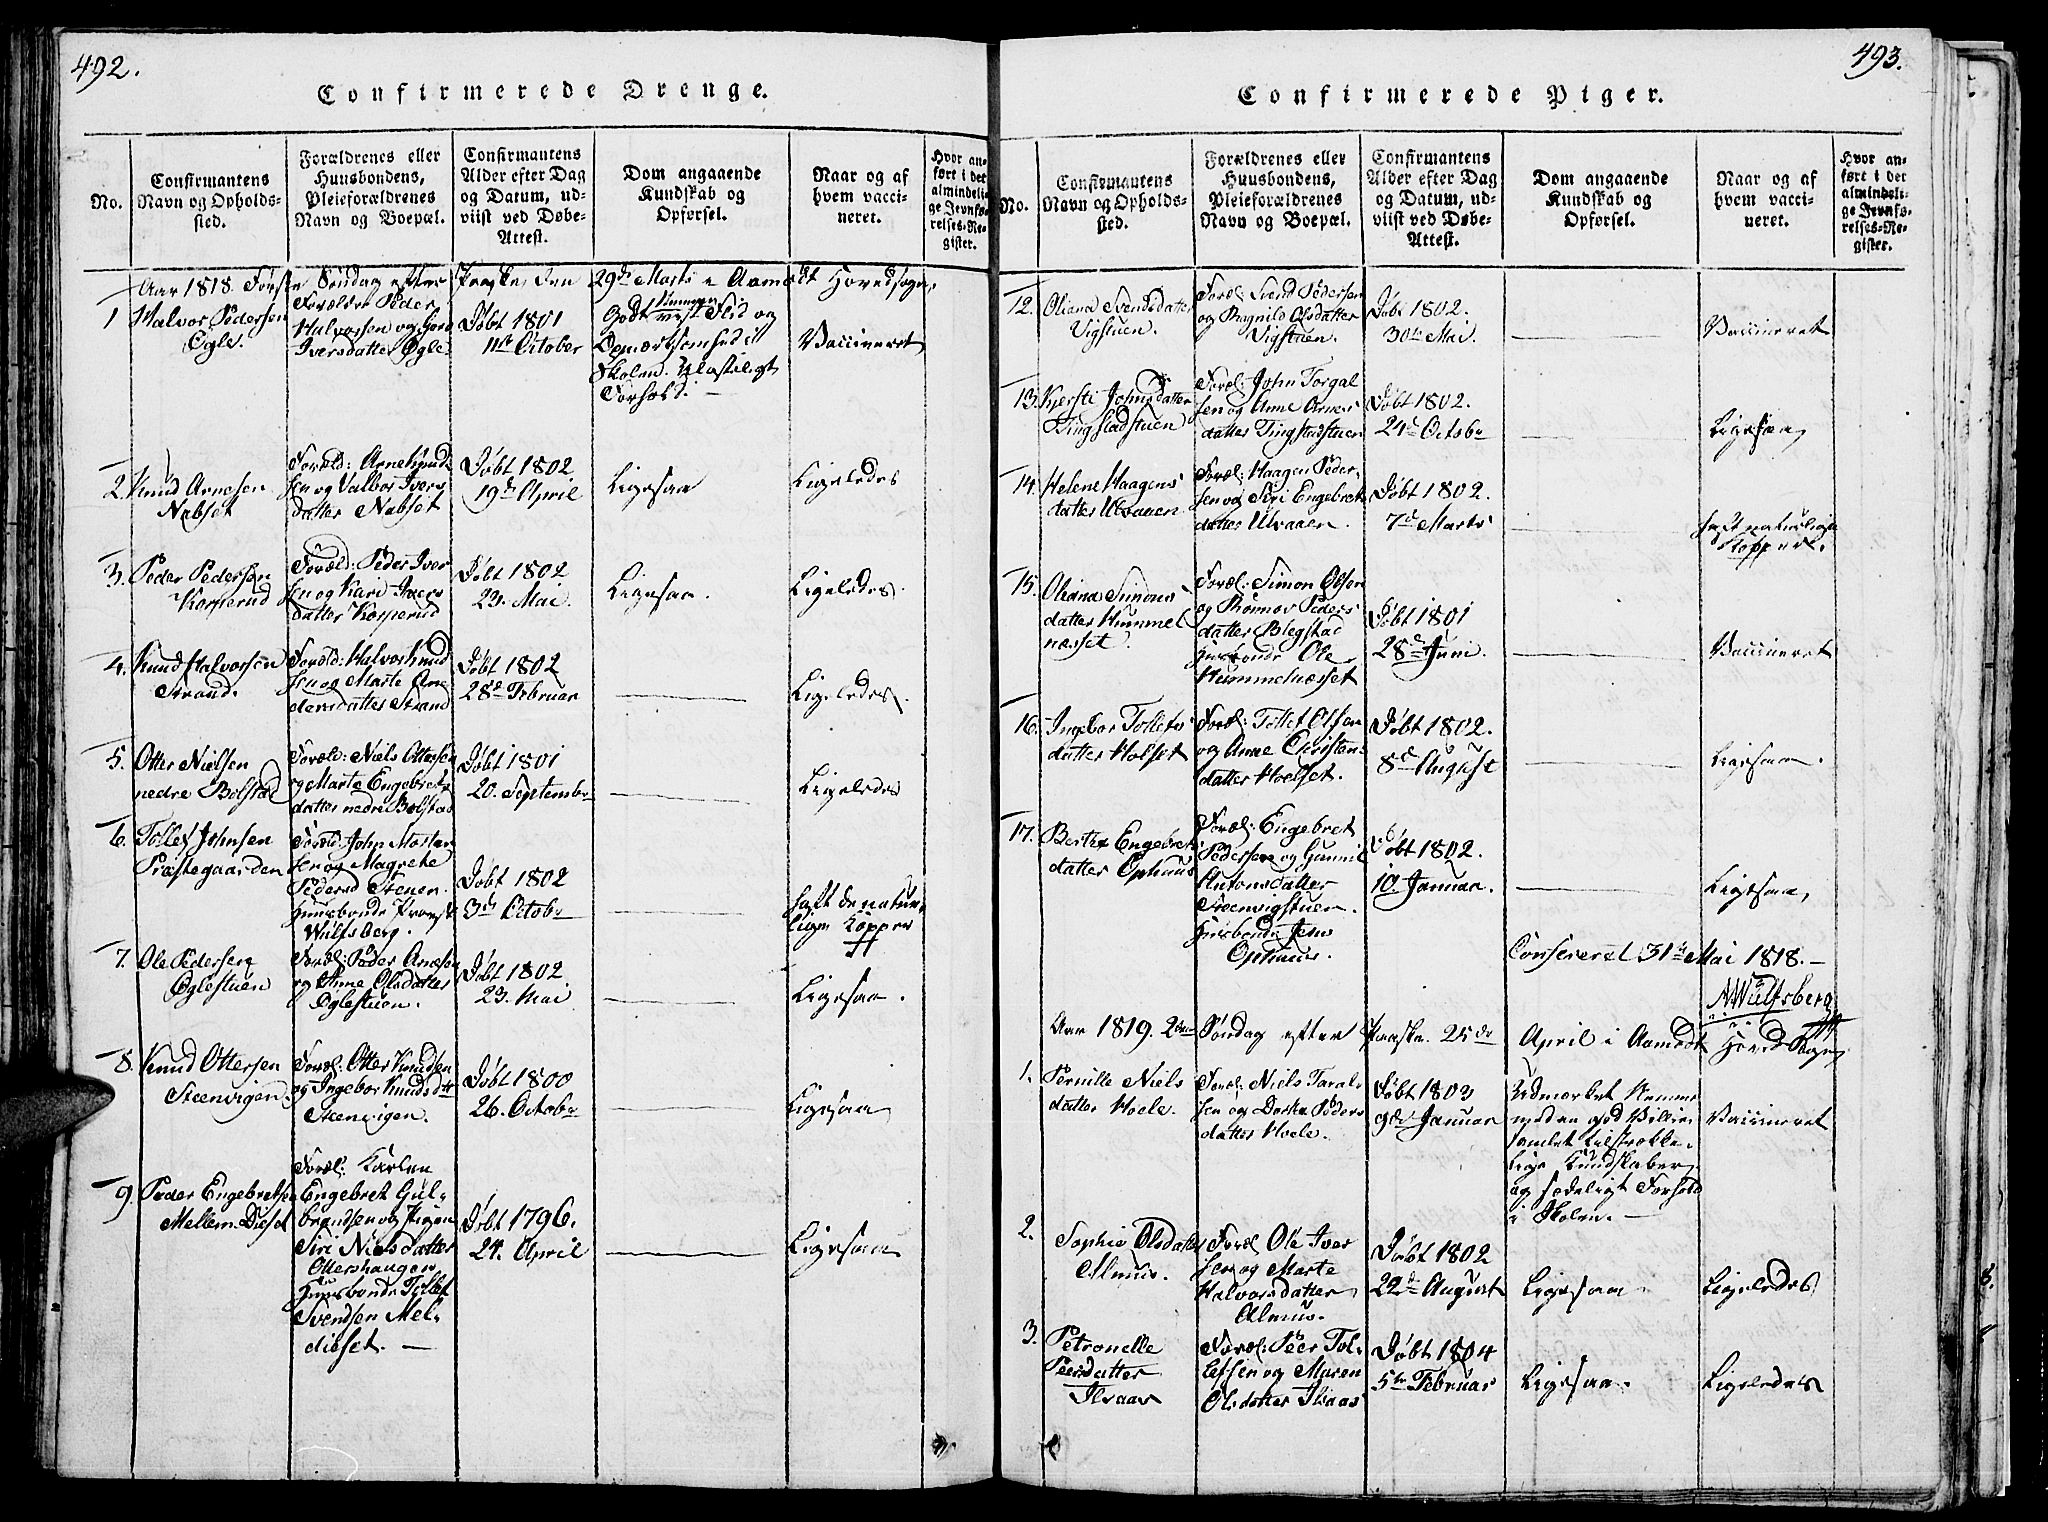 492.
Confirmerede Drenge.
No.
Confirmantens
Navn og Opholds-
sted.
Forældrenes eller
Huusbondens,
Pleieforældrenes
Navn og Boepæl.
Confirmantens
Alder efter Dag
og Datum, ud-
viist ved Døbe-
Attest.
Dom angaaende
Kundskab og
Opførsel.
Naar og af
hvem vacci-
neret.
Hvor an-
ført i det
almindeli-
ge Jevnfø-
relses-Re-
gister.
Aar 1818. Første Søndag efter Paaske den 29de Marts i Aamodt Hovedsogn,
1 Halvor Pedersen
Øgle.
Forældre Peder
Halvorsen og
Iversdatter Øgle
Døbt 1801
11te October
Godt Nemme Flid og
Opmærksomhed i
Skolen.
Forhold. —
Vaccineret
2. Knud Arnesen
Nabset
Foræld: Arne Knud-
sen og Valbor Ivers
datter Nabset
Døbt 1802
19de April
Ligesaa
Ligeledes
3. Peder Pedersen
Korperud
Foræld: Peder Iver
sen og Kari Ivers
datter Korperud
Døbt 1802
23. Mai.
Ligesaa.
Ligeledes.
4. Knud Halvorsen
Strand.
Foræld: Halvor Knud
sen og Marte An
dersdatter Strand
Døbt 1802
28de Februar
Ligeledes.
5. Otter Nielsen
nedre Bolstad
Foræld: Niels Ottersen
og Marte Engebrets
datter nedre Bolstad
Døbt 1801
20. Septembr
Ligeledes
6. Tollef Johnsen
Præstegaarden
Foræld: John Morten
sen og Magrete
Pedersd Stenen.
Huusbonde Provst
Wulfsberg.
Døbt 1802
3de Octobr
haft de natur-
lige Kopper
7. Ole Pedersen
Øglestuen
Foræl: Peder Arnesen
og Anne Olsdatter
Øglestuen.
Døbt 1802
23. Mai
Ligesaa.
8. Knud Ottersen
Steenvigen.
Foræl: Otter Knudsen
og Ingebor Knudsdtr
Steenvigen.
Døbt 1800
26. Octobr
Ligesaa
9. Peder Engebretsen
Mellem Diset
Foræl: Karlen
Engebret Gul-
brandsen og Pigen
Siri Nielsdatter
Ottershaugen
Huusbonde Tollef
Svendsen Mel-
diset. —
Døbt 1796.
24. April
Ligesaa
493.
Confirmerede Piger.
No.
Confirmantens
Navn og Opholds-
sted.
Forældrenes eller
Huusbondens,
Pleieforældrenes
Navn og Boepæl.
Confirmantens
Alder efter Dag
og Datum, ud-
viist ved Døbe-
Attest.
Dom angaaende
Kundskab og
Opførsel.
Naar og af
hvem vacci-
neret.
Hvor an-
ført i det
almindeli-
ge Jevnfø-
relses-Re-
gister.
12. Oliana Svendsdatter
Vigstuen.
Foræl: Svend Pedersen
og Ragnild Olsdatter
Vigstuen.
Døbt 1802.
30te Mai.
Vaccineret
13. Kjersti Johnsdatter
Tingstadstuen
Foræl: John Torgal
sen og Anne Arnes
datter Tingstadstuen
Døbt 1802.
24de Octobr
Ligesaa
14. Helene Haagens
datter Ulvaaen
Foræl: Haagen Peder-
sen og Siri Engebrets
datter Ulvaaen.
Døbt 1802.
7de Marts
haft naturlige
Kopper.
15. Oliana Simons
datter Hummel
næsset.
Foræl: Simon Olsen
og Rønnov Peders
datter Blegstad
Huusbonde Ole
Hummelnæsset
Døbt 1801
28de Juni
Vaccineret
16. Ingebor Tollefs
datter Holset
Foræl: Tollef Olsen
og Anne Christens
datter Hoelset.
Døbt 1802.
8de August
Ligesaa.
17. Berthe Engebrets
datter Ophuus
Foræl: Engebret
Pedersen og Gunnil
Antonsdatter
Steenvigstuen.
Huusbonde Jens
Ophuus.
Døbt 1802.
10. Januar.
Ligesaa,
Confereret 31te Mai 1818. —
N Wulfsberg
Aar 1819. 2den Søndag efter Paaske 25de April i Aamodt Hoved Sogn
1. Pernille Niels
datter Hoele.
Foræl: Niels Taral-
sen og Dorthe Peders
datter Hoele.
Døbt 1803
9de Januar
Udmærket Nemme
med en god Villie
samlet tilstrække-
lige Kundskaber
og sædeligt Forhold
i Skolen. —
Vaccineret
2. Sophie Olsdatter
Almuus.
Foræl Ole Iver
sen og Marte
Halvorsdatter
Almuus.
Døbt 1802
22de August
Ligesaa
Ligeledes
3. Petronelle
Peersdatter
Ilvaas
Foræl: Peer Tol-
lefsen og Maren
Olsdatter Ilvaas
Døbt 1804
5te Februar
Ligesaa.
Ligeledes